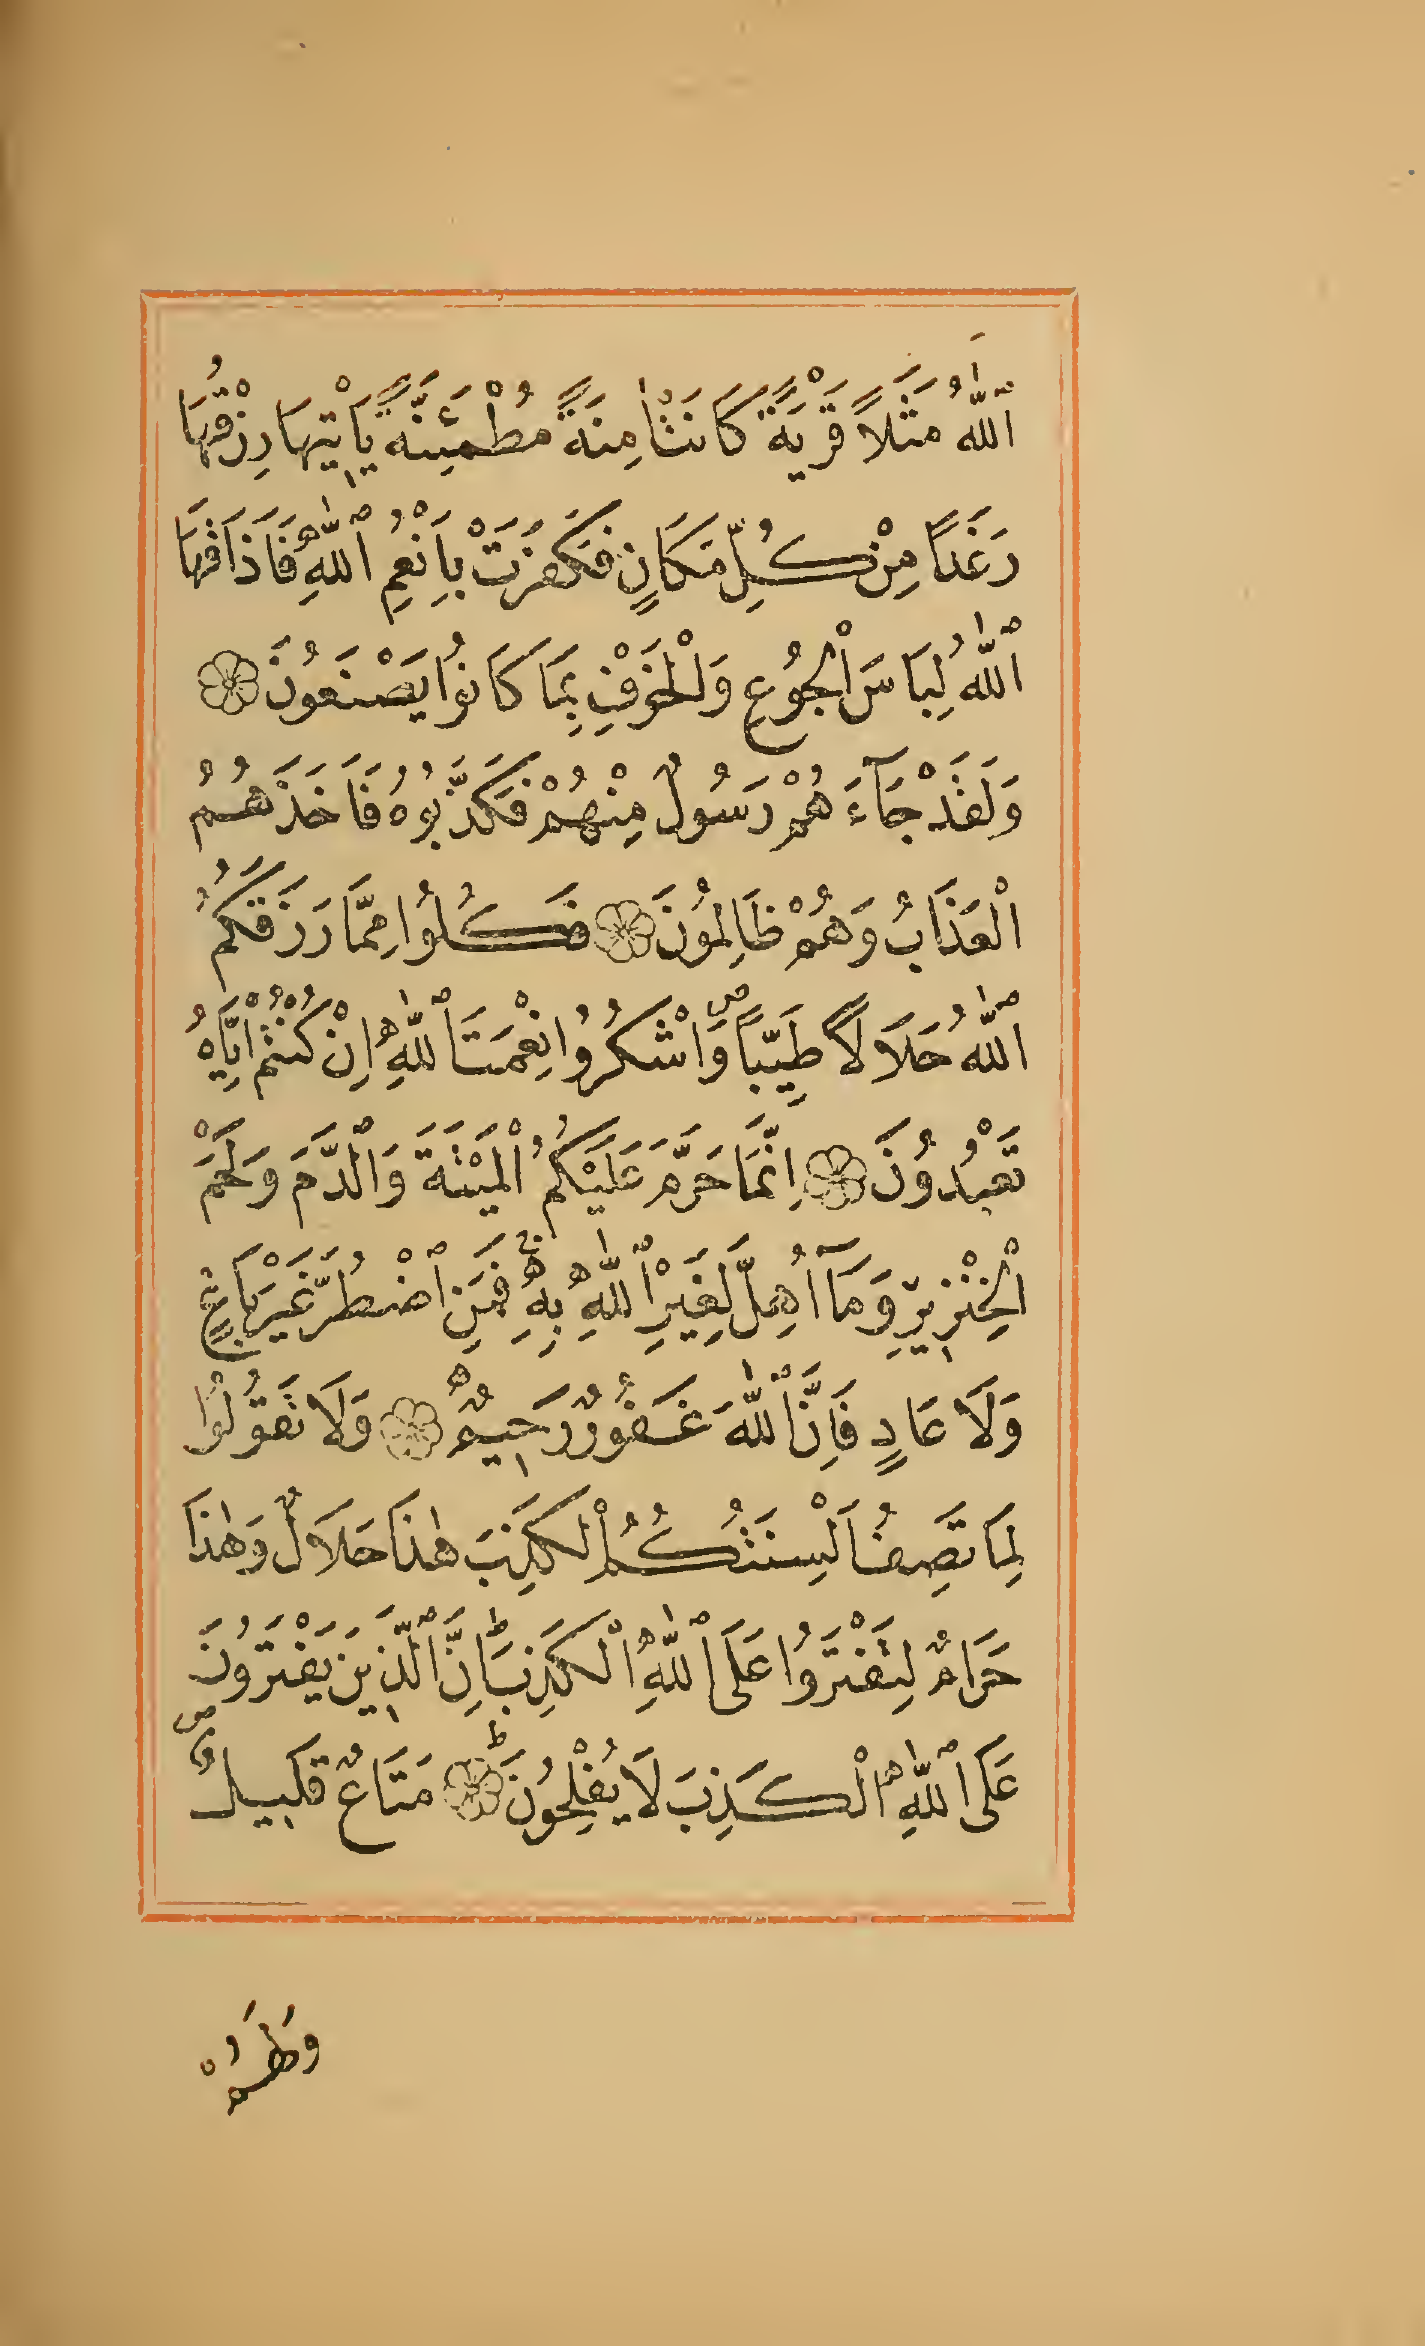 ٱللّٰهُ مَثَلًا قَرْيَةً كَانَتْ اٰمِنَةً مُطْمَئِنَّةً يَأْتِيهَا رِزْقُهَا
رَغَدًا مِنْ كُلِّ مَكَانٍ فَكَفَرَتْ بِاَنْعُمِ ٱللّٰهِ فَاَذَاقَهَا
ٱللّٰهُ لِبَاسَ اْلجُوعِ وَلْخَوْفِ بِمَا كَانُوا يَصْنَعُونَ
وَلَقَدْ جَآءَهُمْ رَسُولٌ مِنْهُمْ فَكَذَّبُوهُ فَاَخَذَهُمُ
اْلعَذَابُ وَهُمْ ظَالِمُونَ فَكُلُوا مِمَّا رَزَقَكُمُ
ٱللّٰهُ حَلَالًا طَيِّبًا وَّاشْكُرُوا نِعْمَتَ ٱللّٰهِ اِنْ كُنْتُمْ اِيَّاهُ
تَعْبُدُونَ اِنَّمَا حَرَّمَ عَلَيْكُمُ اْلمَيْتَةَ وَالدَّمَ وَلَحْمَ
اْلخِنْزِيرِ وَمَآ اُهِلَّ لِغَيْرِ ٱللّٰهِ بِهِ فَمَنِ ٱضْطُرَّ غَيْرَ بَاغٍ
وَلَا عَادٍ فَاِنَّ ٱللّٰهَ غَفُورٌ رَحِيمٌ وَلَا تَقُولُوا
لِمَا تَصِفُ اَلْسِنَتُكُمُ اْلكَذِبَ هٰذَا حَلَالٌ وَهٰذَا
حَرَامٌ لِتَفْتَرُوا عَلَى ٱللّٰهِ اْلكَذِبَ اِنَّ ٱلَّذِينَ يَفْتَرُونَ
عَلَى ٱللّٰهِ اْلكَذِبَ لَا يُفْلِحُونَ مَتَاعٌ قَلِيلٌ